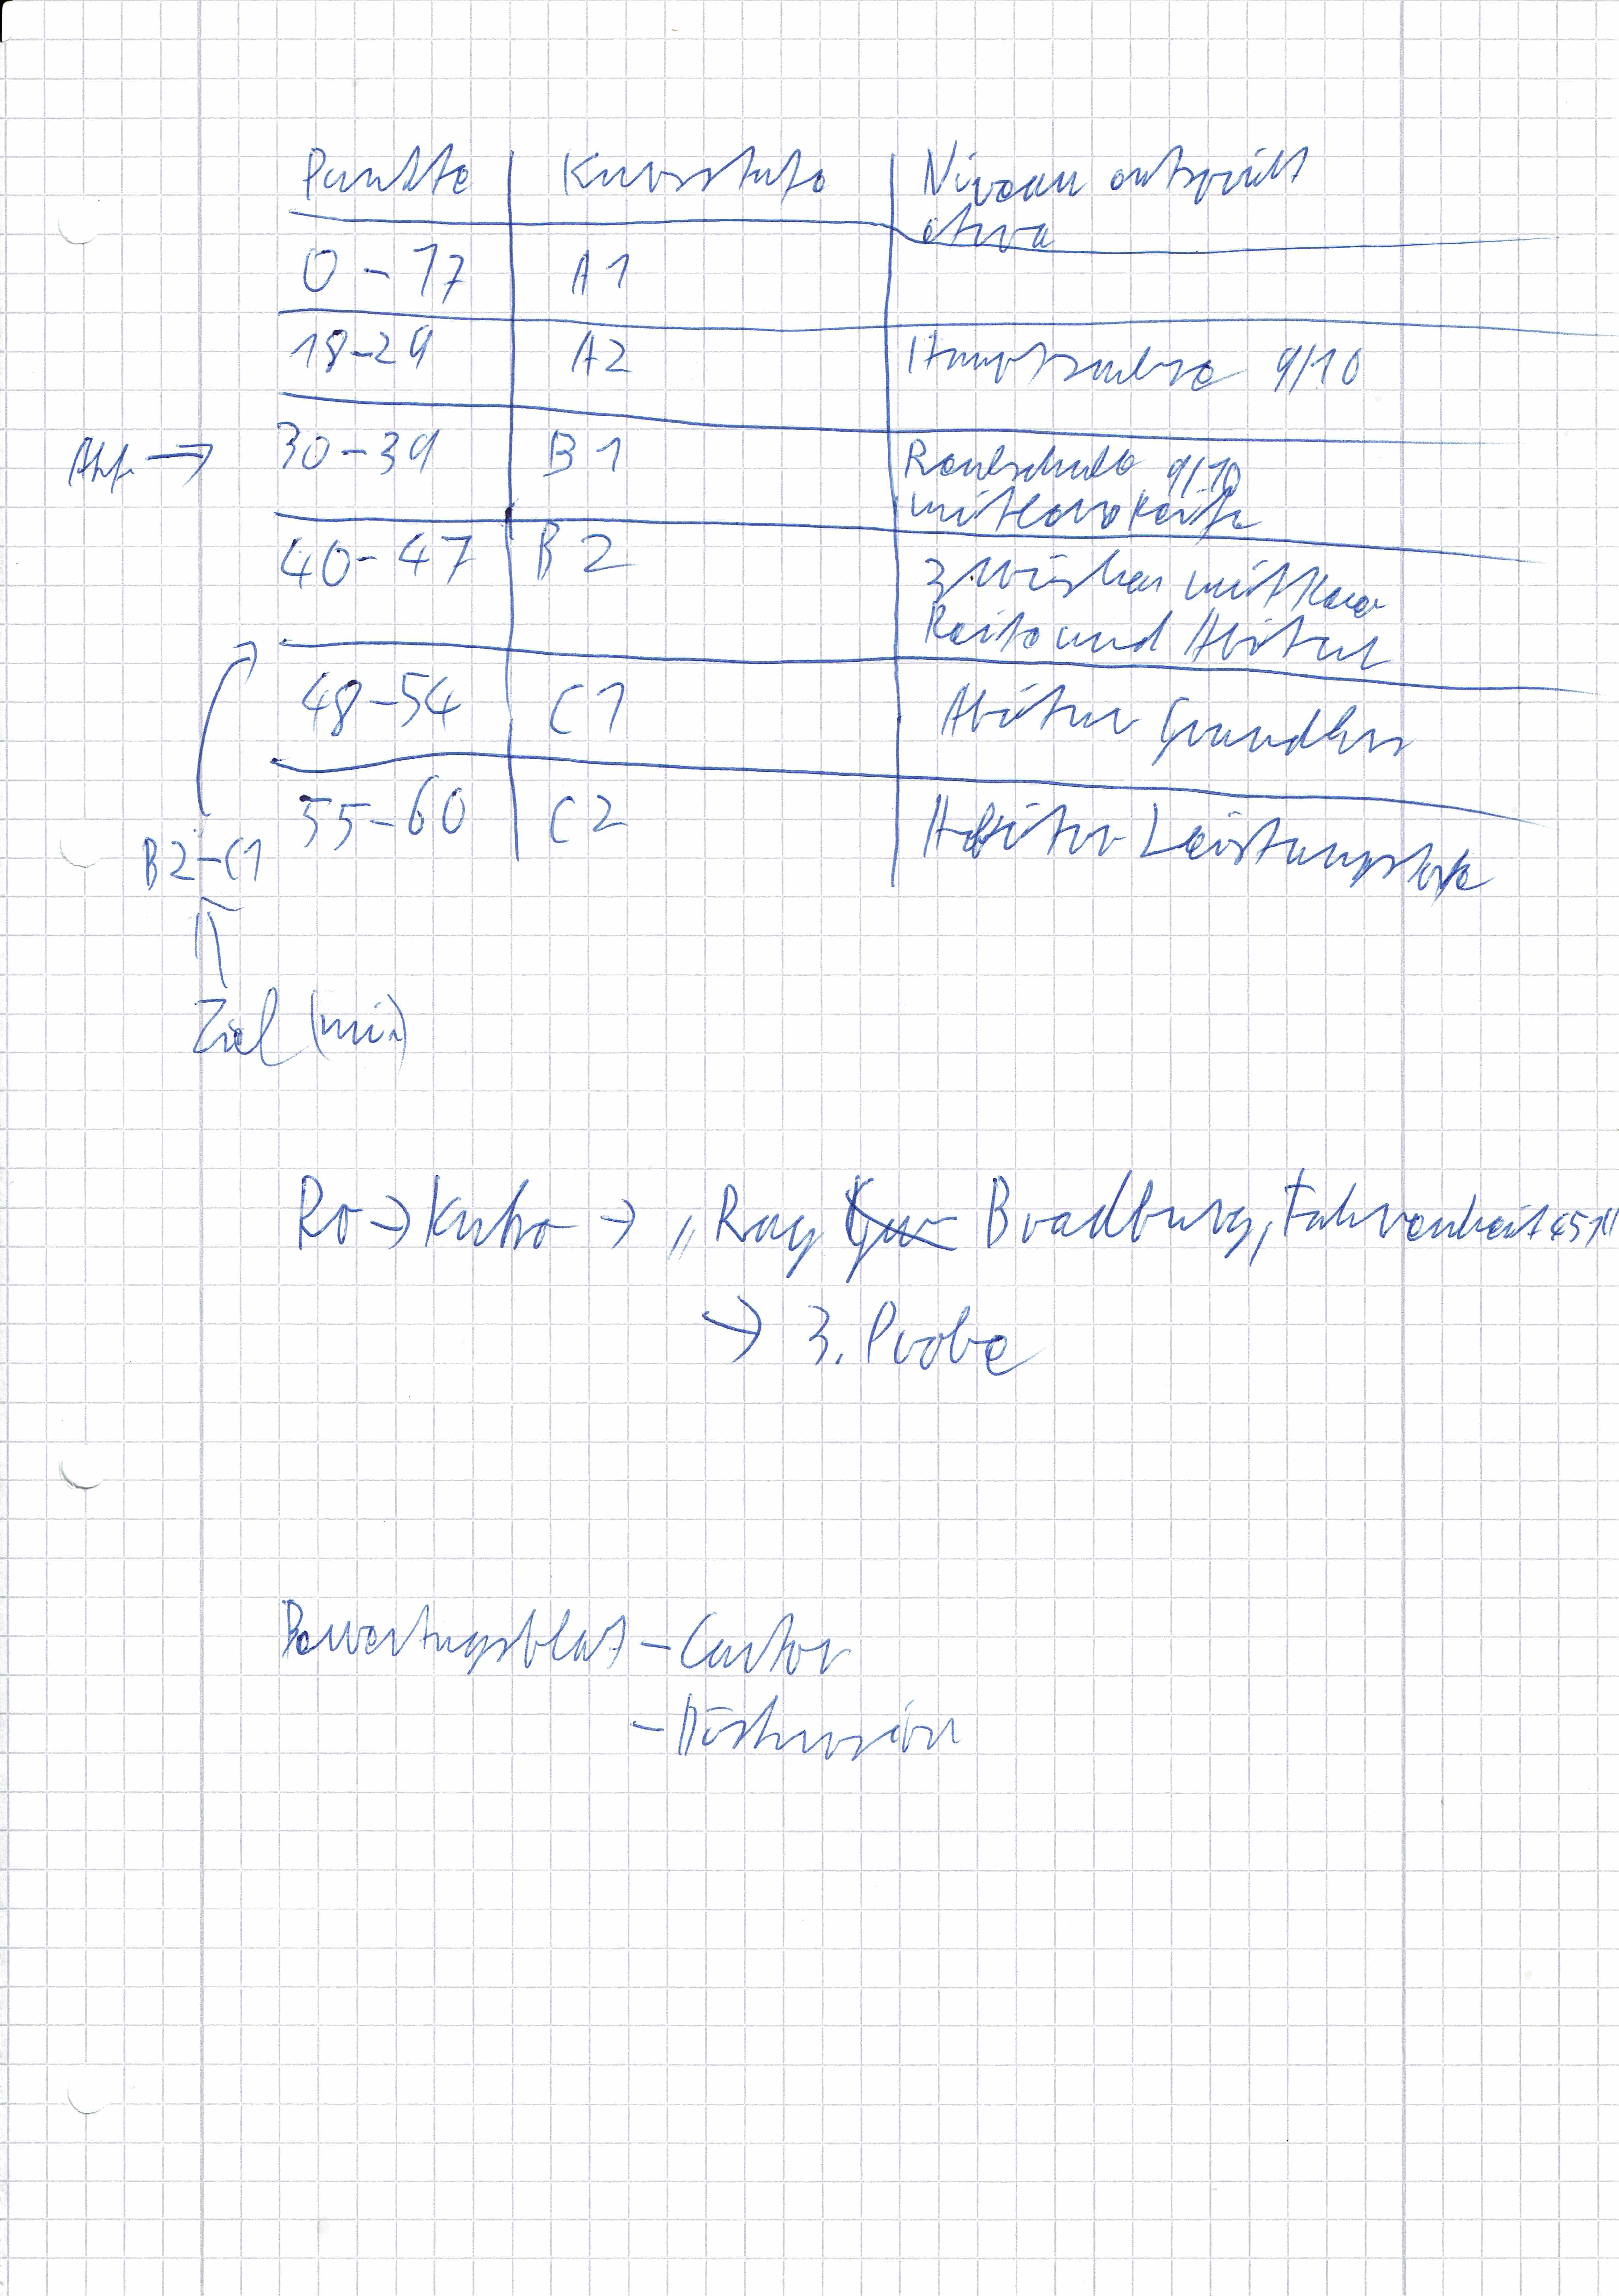 Punkte Kursstufe Niveau entspricht
etwa
0-17 A1
18-29 A2 Hauptschule 9/10
30-39 B1 Realschule 9/10
mittlere Reife
40-47 B2 zwischen mittlerer
Reife und Abitur
48-54 C1 Abitur Grundkurs
55-60 C2 Abitur Leistungskurs
B2-C1
Ziel (min)
→ → „Ray Bradbury, Fahrenheit 451"
→ 3. Probe
Bewertungsblatt - Cartoon
- Diskussion